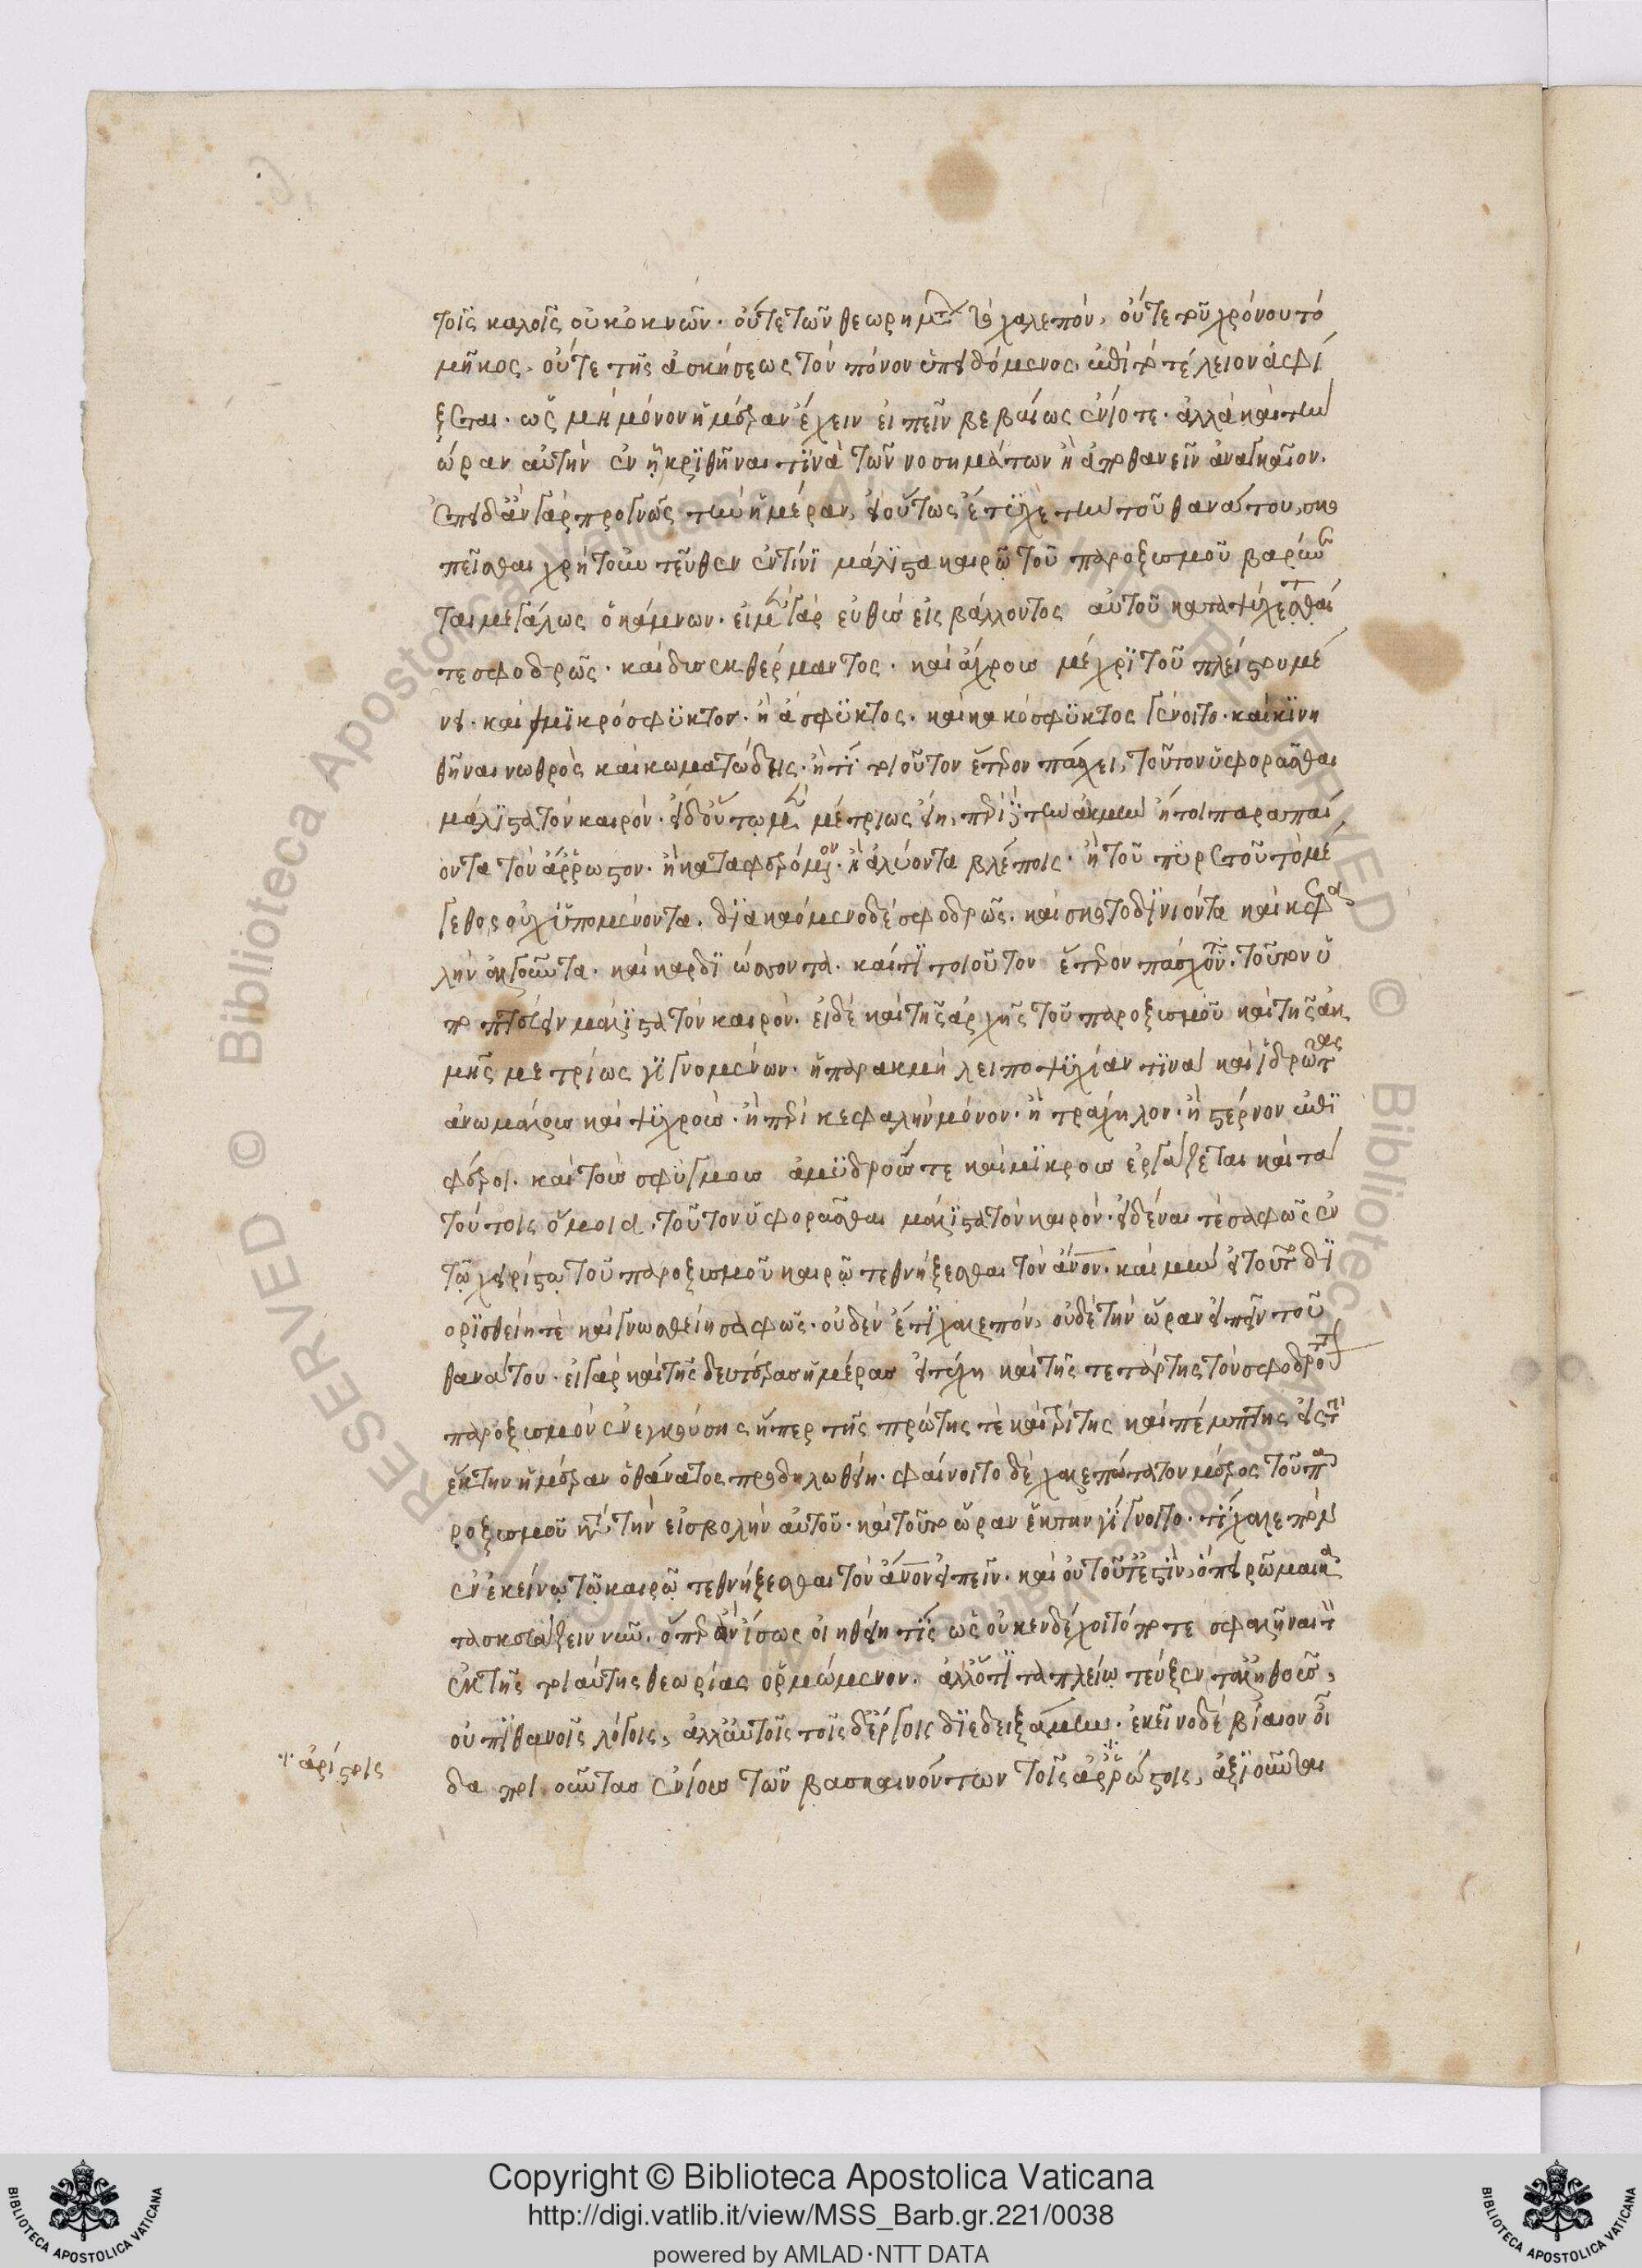 τοῖς καλοῖς οὐκ ὀκνῶν· οὔτε τῶν θεωρημάτων τὸ χαλεπόν, οὔτε τοῦ χρόνου τὸ
μῆκος, οὔτε τῆς ἀσκήσεως τὸν πόνον ὑπειδόμενος, ἐπὶ τὸ τέλειον ἀφί
ξεται· ὡς μὴ μόνον ἡμέραν ἔχειν εἰπεῖν βεβαίως ἐνίοτε· ἀλλὰ καὶ τὴν
ὥραν αὐτὴν ἐν ᾗ κριθῆναι τινὰ τῶν νοσημάτων ἢ ἀποθανεῖν ἀναγκαῖον.
Ἐπειδὰν γὰρ προγνῷς τὴν ἡμέραν, εἰ οὕτως ἔτυχε τὴν τοῦ θανάτου, σκο
πεῖσθαι χρὴ τοὐντεῦθεν ἐν τίνι μάλιστα καιρῷ τοῦ παροξυσμοῦ βαρύνε
ται μεγάλως ὁ κάμνων· εἰ μὲν γὰρ εὐθὺς εἰσβάλλοντος αὐτοῦ καταψύχεσθαί
τε σφοδρῶς· καὶ δυσεκθερμαντος· καὶ ἄχρους μέχρι τοῦ πλείστου μέ
νει· καὶ μικρόσφυκτος· ἢ ἄσφυκτος· καὶ κακόσφυκτος γένοιτο· καὶ κινη
θῆναι νωθρὸς καὶ κωματώδης· ἤ τι τοιοῦτον ἕτερον πάσχει, τοῦτον ὑφορᾶσθαι
μάλιστα τὸν καιρόν· εἰ δ' οὕτω μὲν μέτριως εἴη, περὶ δὲ τὴν ἀκμὴν ἤτοι παραπαί
οντα τὸν ἄρρωστον· ἢ καταφερόμενον· ἢ ἀλύοντα βλέποις· ἢ τοῦ πυρετοῦ τὸ μέ
γεθος οὐχ ὑπομένοντα, διακαόμενο δὲ σφοδρῶς· καὶ σκοτοδινιόντα καὶ κεφα
λὴν ἀλγοῦντα· καὶ καρδιώσσοντα· καί τι τοιοῦτον ἕτερον πάσχοντα· τοῦτον ὑ
ποπτεύειν μάλιστα τὸν καιρόν. εἰ δὲ καὶ τῆς ἀρχῆς τοῦ παροξυσμοῦ καὶ τῆς ἀκ
μῆς μετρίως γιγνομένων· ἡ παρακμὴ λειποψυχίαν τινα καὶ ἱδρῶτας
ἀνωμάλους καὶ ψυχροὺς· ἢ περὶ κεφαλὴν μόνον· ἢ τράχηλον· ἢ στέρνον ἐπι
φέροι· καὶ τοὺς σφυγμους ἀμυδρούς τε καὶ μικροὺς ἐργάζεται καὶ τὰ
τούτοις ὅμοια, τοῦτον ὑφορᾶσθαι μάλιστα τὸν καιρόν· εἰδέναι τὲ σαφῶς ἐν
τῷ χειρίστῳ τοῦ παροξυσμοῦ καιρῷ τεθνήξεσθαι τὸν ἄνον· καὶ μὴν εἰ τοῦτο δι
ορισθείη τὲ καὶ γνωσθείη σαφῶς· οὐδὲν ἔτι χαλεπόν, οὐδὲ τὴν ὥραν εἰπεῖν τοῦ
θανάτου· εἰ γὰρ καὶ τῆς δευτέρας ἡμέρας εἰ τύχη καὶ τῆς τετάρτης τὸν σφοδρότερον
παροξυσμὸν ἐνεγκούσης ἤπερ τῆς πρώτης τὲ καὶ τρίτης καὶ πέμπτης εἰς τὴν
ἕκτην ἡμέραν ὁ θάνατος προδηλωθείη· φαίνοιτο δὲ χαλεπώτατον μέρος τοῦ πα
ροξυσμοῦ κατὰ τὴν εἰσβολὴν αὐτοῦ· καὶ τοῦτο ὥραν ἕκτην γίγνοιτο· τί χαλεπὸν
ἐν ἐκείνῳ τῷ καιρῷ τεθνήξεσθαι τὸν ἄνον εἰπεῖν· καὶ οὐ τοῦτ' ἔστιν, ὅπερ ῥωμαικα
τασκευάζειν νῦν, ὅπερ ἂν ἴσως οἰηθείη τίς ὡς οὐκ ἐνδέχοιτό ποτε σφαλῆναι τὸν
ἐκ τῆς τοιαύτης θεωρίας ὁρμώμενον. ἀλλ' ὅτι τὰ πλείω τεύξεν τἀληθοῦς,
οὐ πιθανοῖς λόγοις, ἀλλ' αὐτοῖς τοῖς δ' ἔργοις διεδειξάμην· ἐκεῖνο δὲ βίαιον οἶ
δα ποιοῦντας ἐνίους τῶν βασκαινόντων τοῖς ἀρρώστοις, ἀξιοῦσθαι
ἀρίστοις